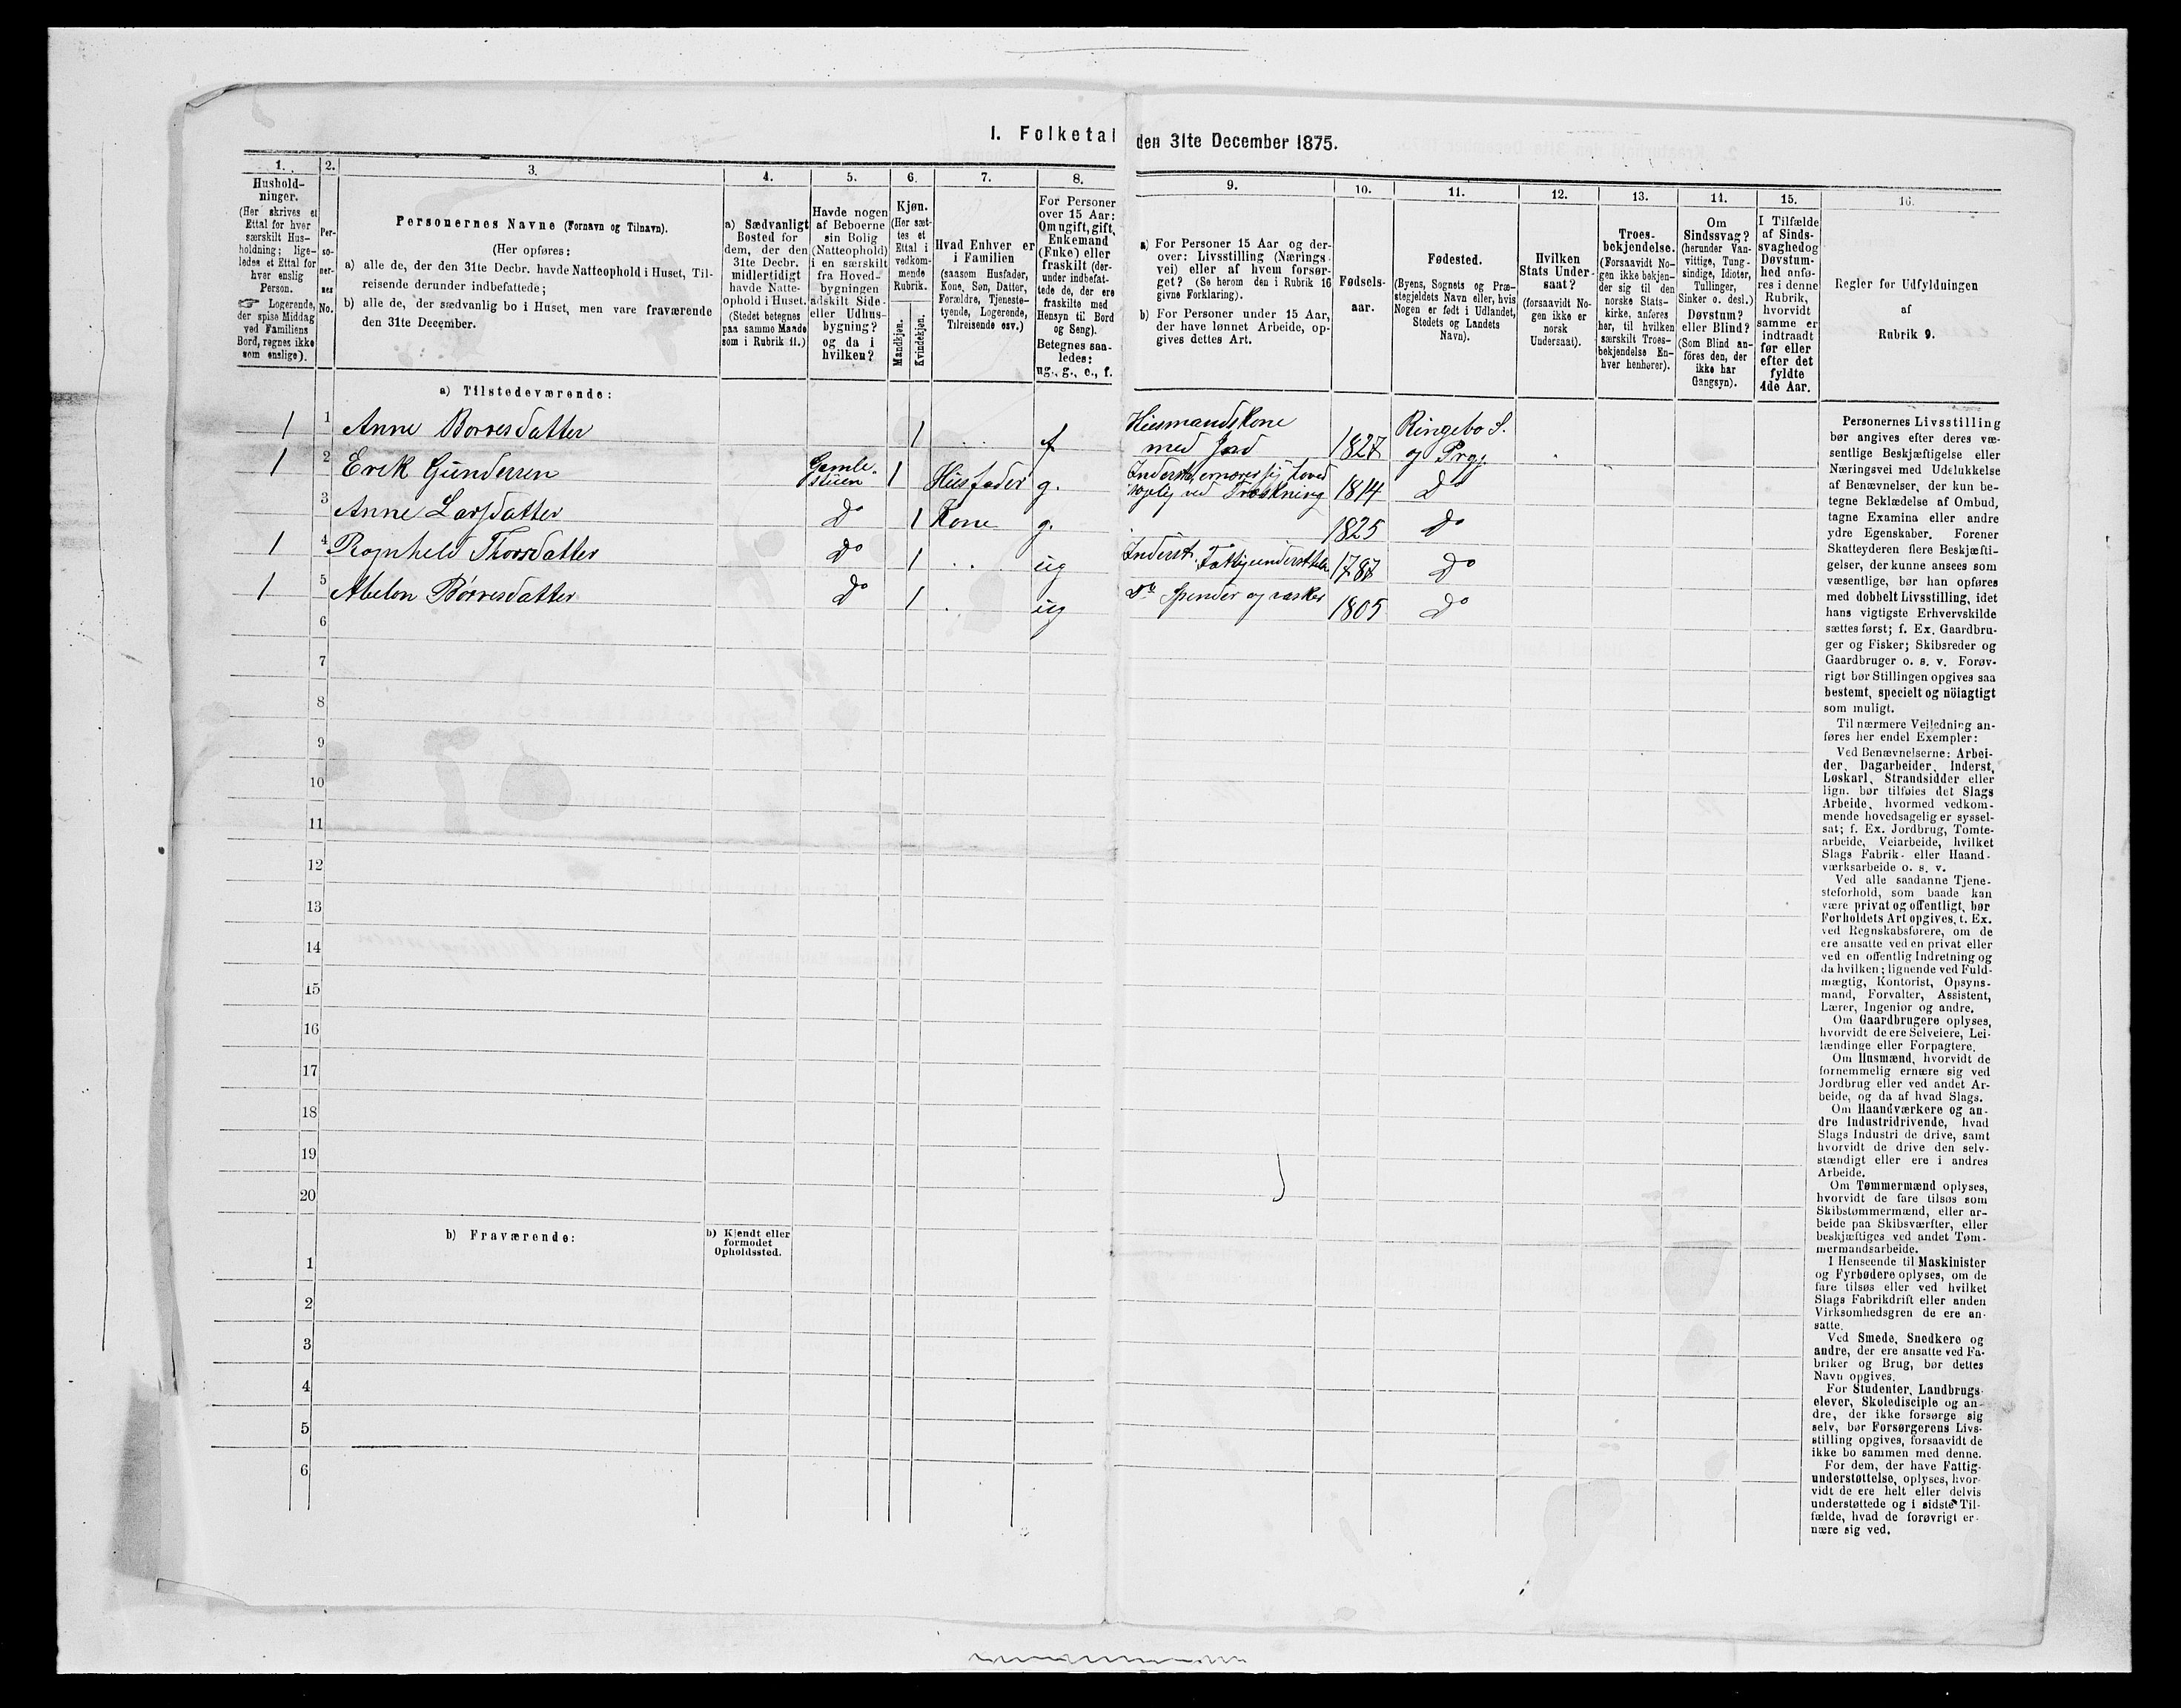 1. Folketal den 31te December 1875.
1.
Hushold-
ninger.
(Her skrives et
Ettal for hver
særskilt Hus-
holdning; lige-
ledes et Ettal for
hver enslig
Person.
☞ Logerende,
der spise Middag
ved Familiens
Bord, regnes ikke
som enslige).
2.
Per-
so-
ner-
nes
No.
3.
Personernes Navne (Fornavn og Tilnavn).
(Her opføres:
a) alle de, der den 31te Decbr. havde Natteophold i Huset, Til-
reisende derunder indbefattede;
b) alle de, der sædvanlig bo i Huset, men vare fraværende
den 31te December.
4.
a) Sædvanligt
Bosted for
dem, der den
31te Decbr.
midlertidigt
havde Natte-
ophold i Huset.
(Stedet betegnes
paa samme Maade
som i Rubrik 11.)
5.
Havde nogen
af Beboerne
sin Bolig
(Natteophold)
i en særskilt
fra Hoved-
bygningen
adskilt Side-
eller Udhus-
bygning?
og da i
hvilken?
6.
Kjøn.
(Her sæt-
tes et
Ettal i
vedkom-
mende
Rubrik.
Mandkjøn.
Kvindekjøn.
7.
Hvad Enhver er
i Familien
(saasom Husfader,
Kone, Søn, Datter,
Forældre, Tjeneste-
tyende, Logerende,
Tilreisende osv.)
8.
For Personer
over 15 Aar:
Om ugift, gift,
Enkemand
(Enke) eller
fraskilt (der-
under indbefat-
tede de, der ere
fraskilte med
Hensyn til Bord
og Seng).
Betegnes saa-
ledes:
ug., g., e., f.
9.
a) For Personer 15 Aar og der-
over: Livsstilling (Nærings-
vei) eller af hvem forsør-
get? (Se herom den i Rubrik 16
givne Forklaring).
b) For Personer under 15 Aar,
der have lønnet Arbeide, op-
gives dettes Art.
10.
Fødsels-
aar.
11.
Fødested.
(Byens, Sognets og Præ-
stegjeldets Navn eller, hvis
Nogen er født i Udlandet,
Stedets og Landets
Navn).
12.
Hvilken
Stats Under-
saat?
(forsaavidt No-
gen ikke er
norsk
Undersaat).
13.
Troes-
bekjendelse.
(Forsaavidt No-
gen ikke bekjen-
der sig til den
norske Stats-
kirke, anføres
her, til hvilken
særskilt Troes-
bekjendelse En-
hver henhører).
14.
Om
Sindssvag?
(herunder Van-
vittige, Tung-
sindige, Idioter,
Tullinger,
Sinker o. desl.)
Døvstum?
eller Blind?
(Som Blind an-
föres den, der
ikke har
Gangsyn).
15.
I Tilfælde
af Sinds-
svaghed og
Døvstum-
hed anfø-
res i denne
Rubrik,
hvorvidt
samme er
indtraadt
før eller
efter det
fyldte
4de Aar.
16.
Regler før Udfyldningen
af
Rubrik 9.
a) Tilstedeværende:
1 1 Anne Borresdatter 1 f Huusmandskone
med Jord 1827 Ringebo S.
og Prgj.
1 2 Erik Gundersen Gamle-
stuen 1 Husfader g. Inderst, ernærer sig hoved
sagelig ved Træskning 1814 Do
3 Anne Larsdatter Do 1 Kone g. 1825 Do
1 4 Ragnhild Thorsdatter Do 1 ug Inderst. 1787 Do
1 5 Abelon Børresdatter Do 1 ug Do Spinder og vasker 1805 Do
6
7
8
9
10
11
12
13
14
15
16
17
18
19
20
b) Fraværende:
b) Kjendt eller
formodet
Opholdssted.
1
2
3
4
5
6
Personernes Livsstilling
bør angives efter deres væ-
sentlige Beskjæftigelse eller
Næringsvei med Udelukkelse
af Benævnelser, der kun be-
tegne Beklædelse af Ombud,
tagne Examina eller andre
ydre Egenskaber. Forener
Skatteyderen flere Beskjæfti-
gelser, der kunne ansees som
væsentlige, bør han opføres
med dobbelt Livsstilling, idet
hans vigtigste Erhvervskilde
sættes først; f. Ex. Gaardbru-
ger og Fisker; Skibsreder og
Gaardbruger o. s. v. Forøv-
rigt bør Stillingen opgives saa
bestemt, specielt og nöiagtigt
som muligt.
Til nærmere Veiledning an-
føres her endel Exempler:
Ved Benævnelserne: Arbei-
der, Dagarbeider, Inderst,
Løskarl, Strandsidder eller
lign. bør tilføies det Slags
Arbeide, hvormed vedkom-
mende hovedsagelig er syssel-
sat; f. Ex. Jordbrug, Tomte-
arbeide, Veiarbeide, hvilket
Slags Fabrik- eller Haand-
værksarbeide o. s. v.
Ved alle saadanne Tjene-
steforhold, som baade kan
være privat og offentligt, bør
Forholdets Art opgives, t. Ex.
ved Regnskabsførere, om de
ere ansatte ved en privat eller
ved en offentlig Indretning og
da hvilken; lignende ved Fuld-
mægtig, Kontorist, Opsyns-
mand, Forvalter, Assistent,
Lærer, Ingeniør og andre.
Om Gaardbrugere oplyses,
hvorvidt de ere Selveiere, Lei-
lændinge eller Forpagtere.
Om Husmænd, hvorvidt de
fornemmelig ernære sig ved
Jordbrug eller ved andet Ar-
beide, og da af hvad Slags.
Om Haandværkere og an-
dre Industridrivende, hvad
Slags Industri de drive, samt
hvorvidt de drive den selv-
stændigt eller ere i andres
Arbeide.
Om Tømmermænd oplyses,
hvorvidt de fare tilsøs som
Skibstømmermænd, eller ar-
beide paa Skibsværfter, eller
beskjæftiges ved andet Tøm-
mermandsarbeide.
I Henseende til Maskinister
og Fyrbødere oplyses, om de
fare tilsøs eller ved hvilket
Slags Fabrikdrift eller anden
Virksomhedsgren de ere an-
satte.
Ved Smede, Snedkere og
andre, der ere ansatte ved Fa-
briker og Brug, bør dettes
Navn opgives.
For Studenter, Landbrugs-
elever, Skoledisciple og an-
dre, der ikke forsørge sig
selv, bør Forsørgerens Livs-
stilling opgives, forsaavidt de
ikke bo sammen med denne.
For dem, der have Fattig-
understøttelse, oplyses, hvor-
vidt de ere helt eller delvis
understøttede og i sidste Til-
fælde, hvad de forøvrigt er-
nære sig ved.